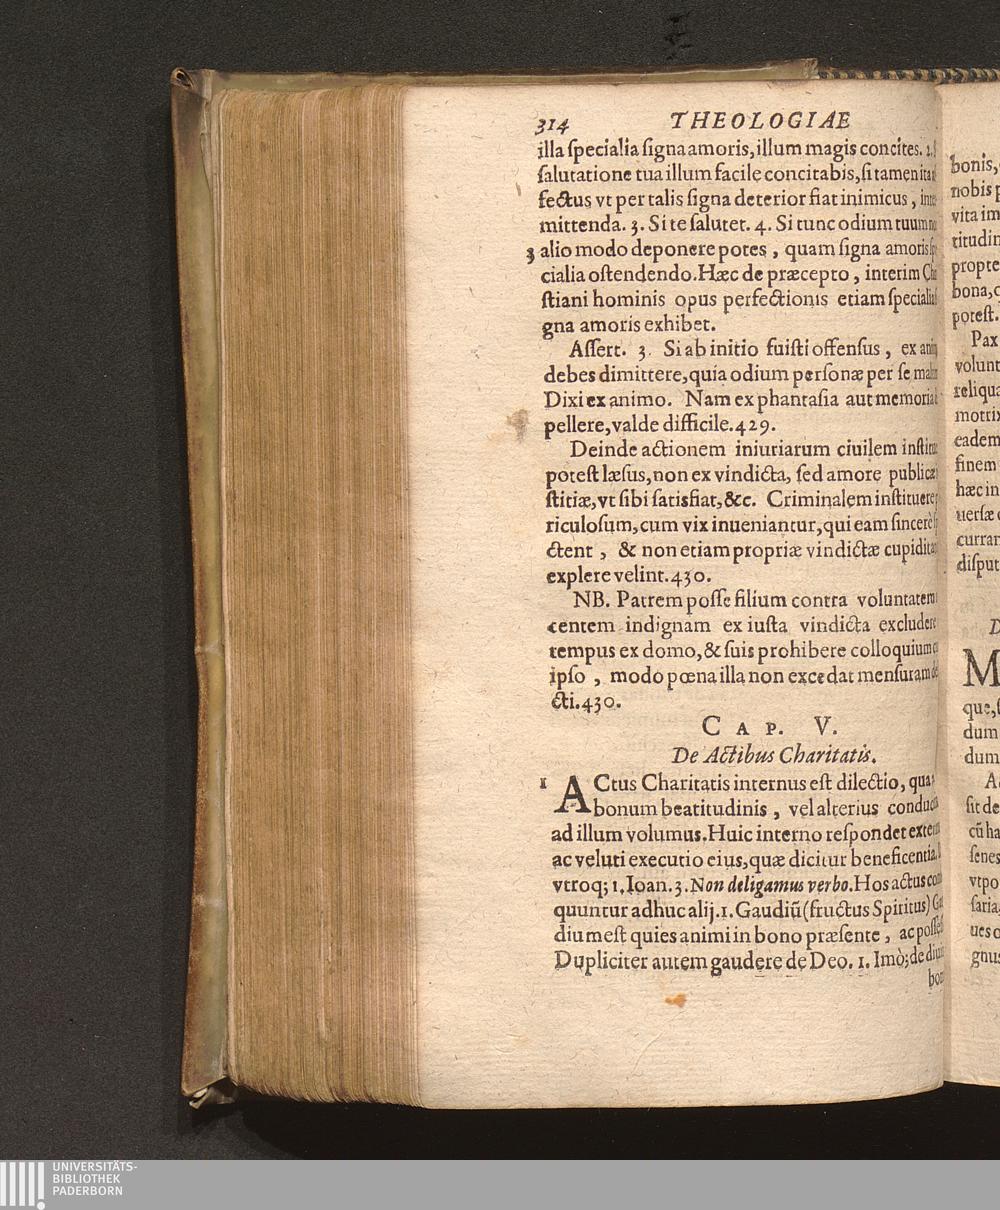 314 THEOLOGIAE
illa ſpecialia ſigna amoris, illum magis concites. 2.
ſalutatione tua illum facile concitabis, ſi tamen ita
fectus vt per talis ſigna deterior fiat inimicus,
mittenda. 3. Si te ſalutet. 4. Si tunc odium tuum
3 alio modo deponere potes, quam ſigna amoris
cialia oſtendendo. Hæc de præcepto, interim
ſtiani hominis opus perfectionis etiam
gna amoris exhibet.
Aſſert. 3. Si ab initio fuiſti offenſus, ex
debes dimittere, quia odium perſonæ per ſe
Dixi ex animo. Nam ex phantaſia aut memoria
pellere, valde difficile. 429.
Deinde actionem iniuriarum ciuilem
poteſt læſus, non ex vindicta, ſed amore
ſtitiæ, vt ſibi ſatisfiat, &c. Criminalem inſtituere
riculoſum, cum vix inueniantur, qui eam ſincerè
ctent, & non etiam propriæ vindictæ
explere velint. 430.
NB. Patrem poſſe filium contra voluntatem
centem indignam ex iuſta vindicta excludere
tempus ex domo, & ſuis prohibere colloquium
ipſo, modo pœna illa non excedat menſuram
cti. 430.
CAP. V.
De Actibus Charitatis.
1 ACtus Charitatis internus eſt dilectio, qua
bonum beatitudinis, vel alterius
ad illum volumus. Huic interno reſpondet
ac veluti executio eius, quæ dicitur beneficentia.
vtroq; 1. Ioan. 3. Non deligamus verbo. Hos actus
quuntur adhuc alij. 1. Gaudiũ (fructus Spiritus)
dium eſt quies animi in bono præſente, ac
Dupliciter autem gaudere de Deo. 1. Imò; de
bonis,
nobis
vita
titudin
propte
bona,
poteſt.
Pax
volunt
reliqua
motrix
eadem
finem
hæc in
uerſæ
curran
diſput
M
que,
dum
dum
ſit de
cũ ha
ſenes
vtpo
ſaria
ues
gnus
UNIVERSITÄTS-
BIBLIOTHEK
PADERBORN